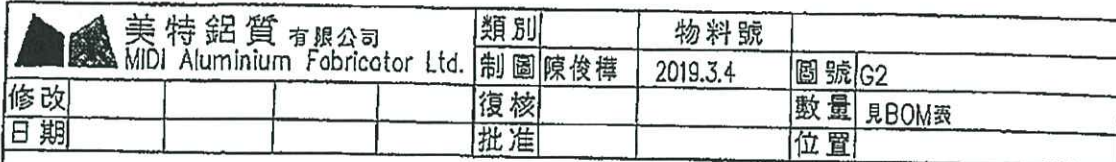 美特鋁質有限公司
MIDI Aluminium Fabricator Ltd.
類別 物料號
制圖 陳俊樺 2019.3.4 圖號 G2
修改 復核 數量 見BOM表
日期 批准 位置